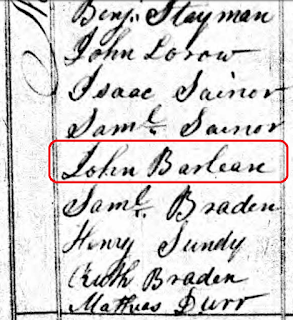 Benjn. Stayman
John Lorow
Isaac Sainor
Saml. Sainor
John Barlean
Saml. Braden
Henry Sundy
Ruth Braden
Mathias Durr